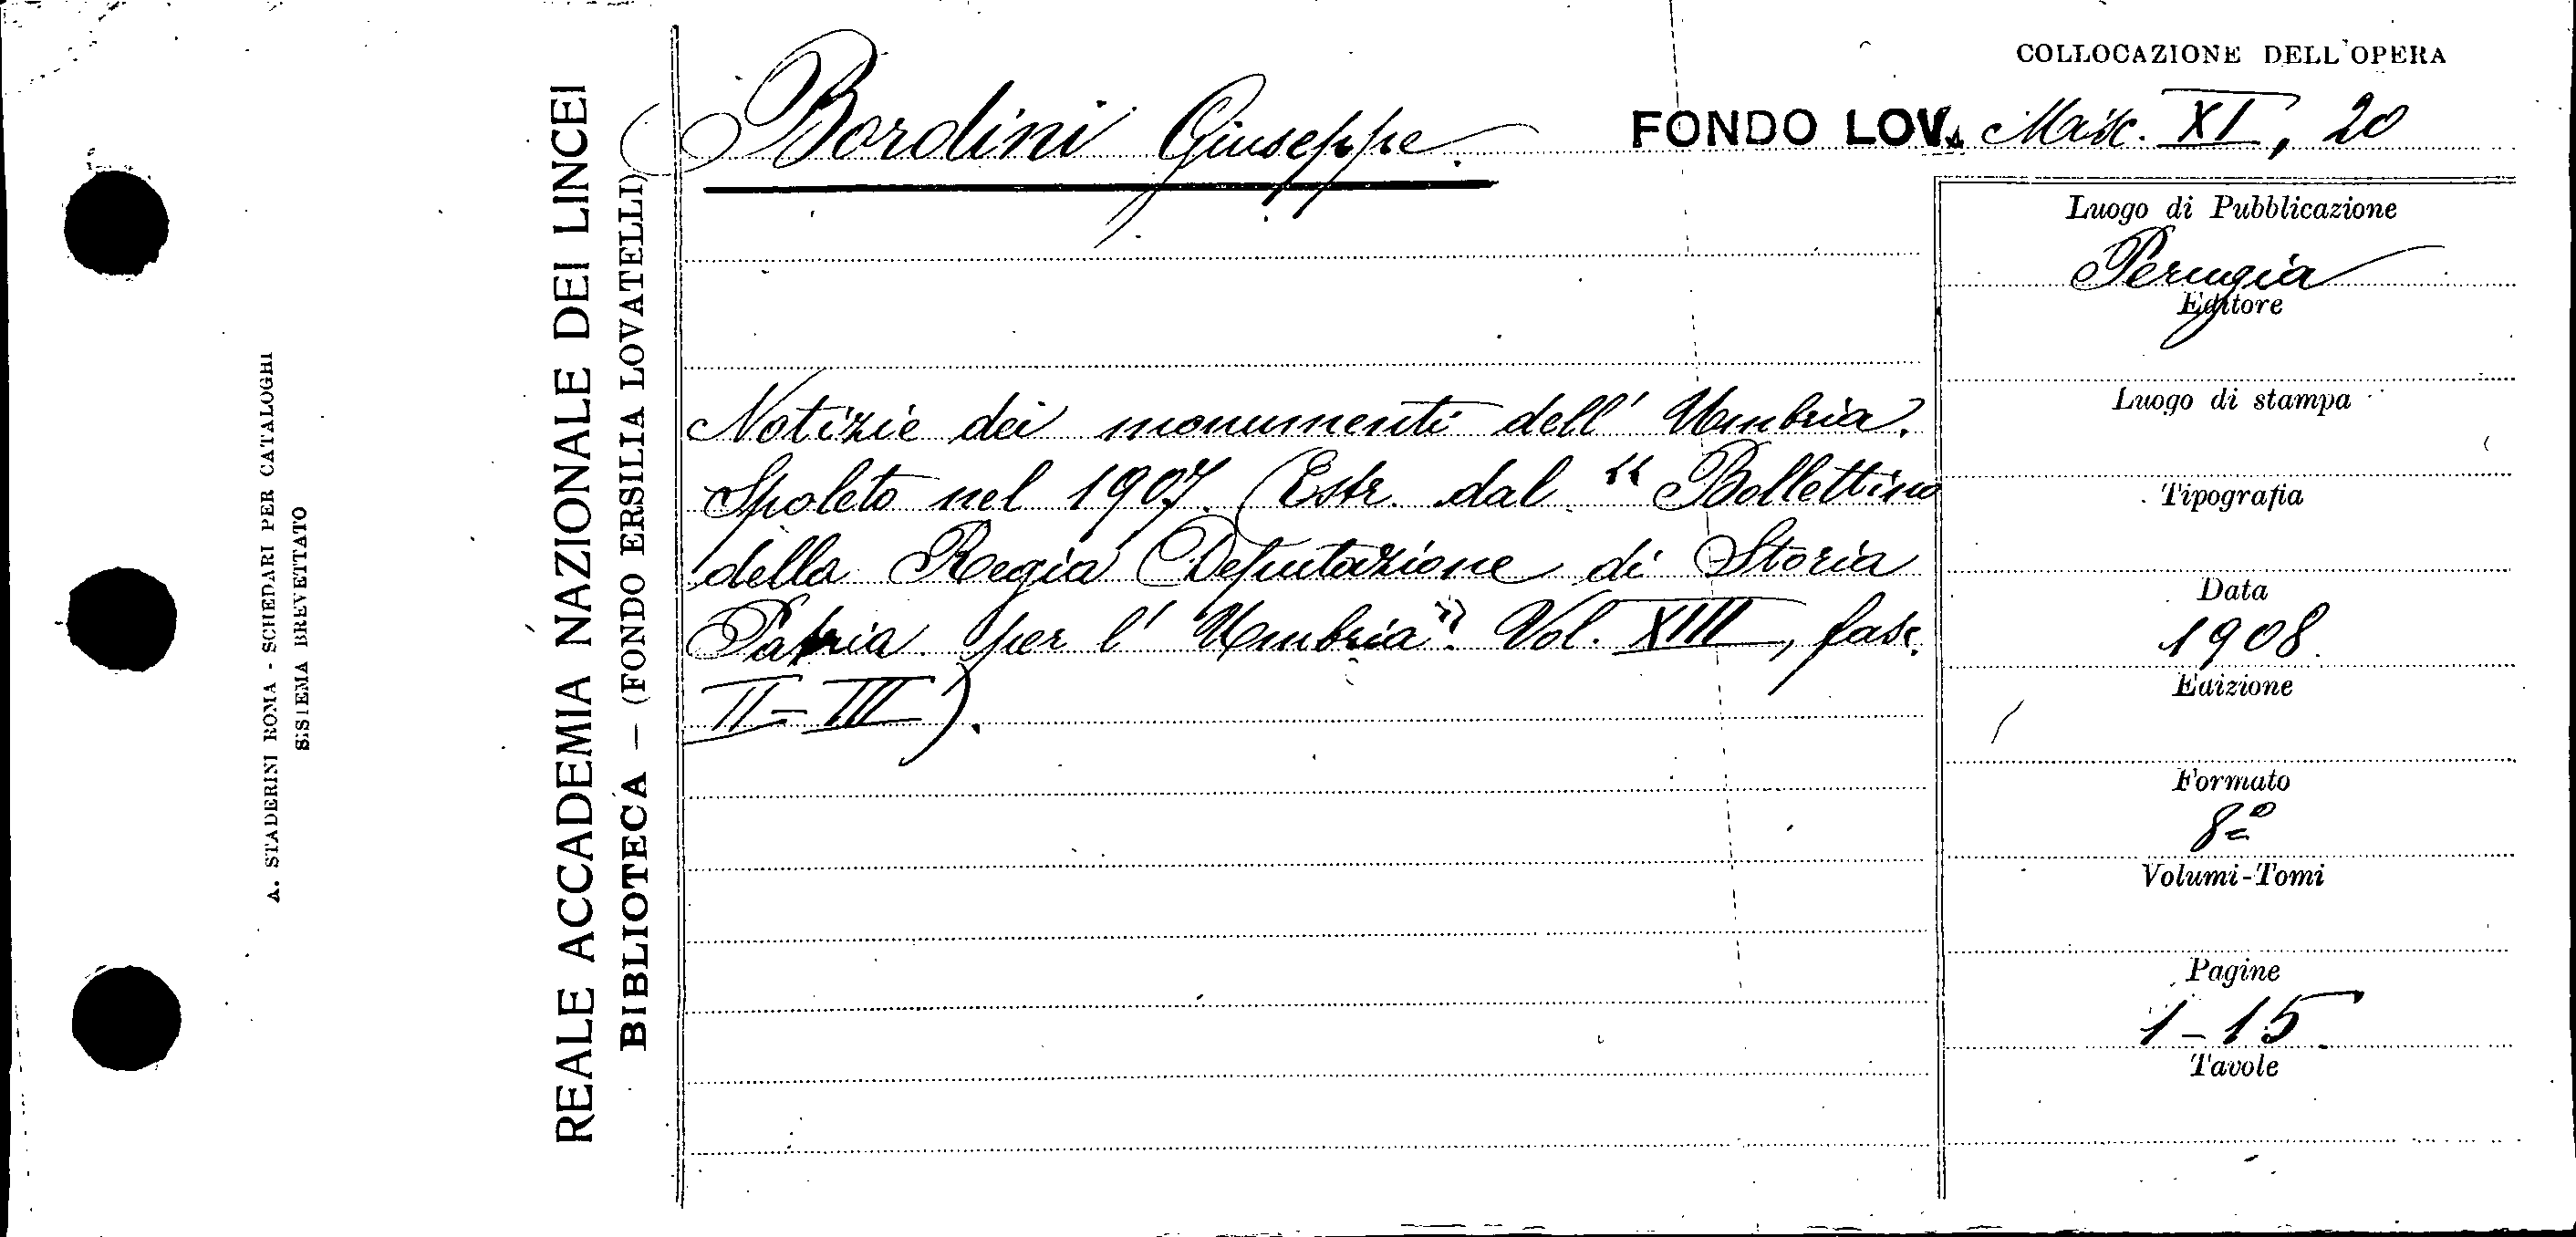 COLLOCAZIONE DELL'OPERA
Bordini Giuseppe.
FONDO LOV. Misc. XI, 20
Notizie dei monumenti dell' Umbria.
Spoleto nel 1907. (Estr. dal “ Bollettino
della Regia Deputazione di Storia
Patria per l' Umbria”. Vol. XIII, fasc.
II-III).
Luogo di Pubblicazione
Perugia
Editore
Luogo di stampa
Tipografia
Data
1908.
Edizione
Formato
8º
Volumi-Tomi
Pagine
1-15
Tavole
REALE ACCADEMIA NAZIONALE DEI LINCEI
BIBLIOTECA — (FONDO ERSILIA LOVATELLI)
A. STADERINI ROMA - SCHEDARI PER CATALOGHI
SISTEMA BREVETTATO